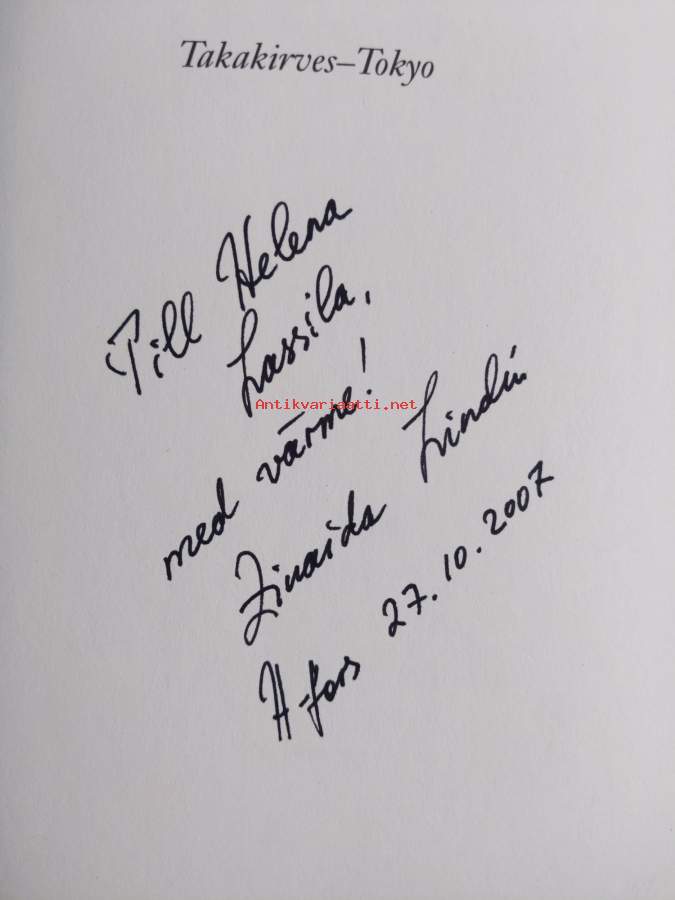 Takakirves–Tokyo
Till Helena
Lassila,
med värme!
Antikvariaatti.net
Zinaida Lindén
H-fors 27.10.2007